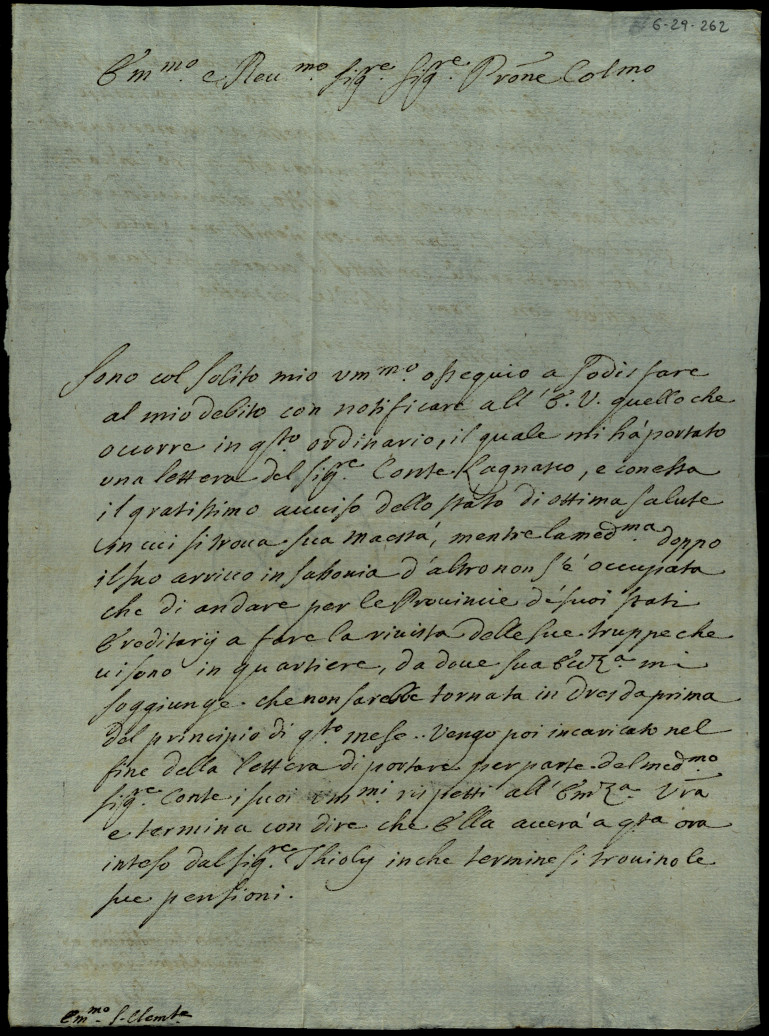 6-29-262
Em.mo e Reu.mo Sig.re Sig.re Prõne Colmo
Sono col solito mio vm.mo ossequio a sodisfare
al mio debito con notificare all' E. V. quello che
occorre in q.sto ordinario, il quale mi hà portato
una lettera del Sig.re Conte Lagnasco, e con essa
il gratissimo auuiso dello stato di ottima salute
in cui si troua sua Maestà, mentre la med.ma doppo
il suo arriuo in Sassonia d'altro non s'è occupata
che di andare per le Prouincie de suoi stati
Ereditarij a fare la riuista delle sue truppe che
ui sono in quartiere, da doue sua Ecc.za mi
soggiunge che non sarebbe tornata in Dresda prima
del principio di q.sto mese. Vengo poi incaricato nel
fine della lettera di portare per parte del med.mo
Sig.re Conte i suoi vm.mi rispetti all' Em.za Vrã
e termina con dire che Ella auerà a q.sta ora
inteso dal Sig.re Thioly in che termine si trouino le
sue pensioni.
Em.mo S. Clem.te